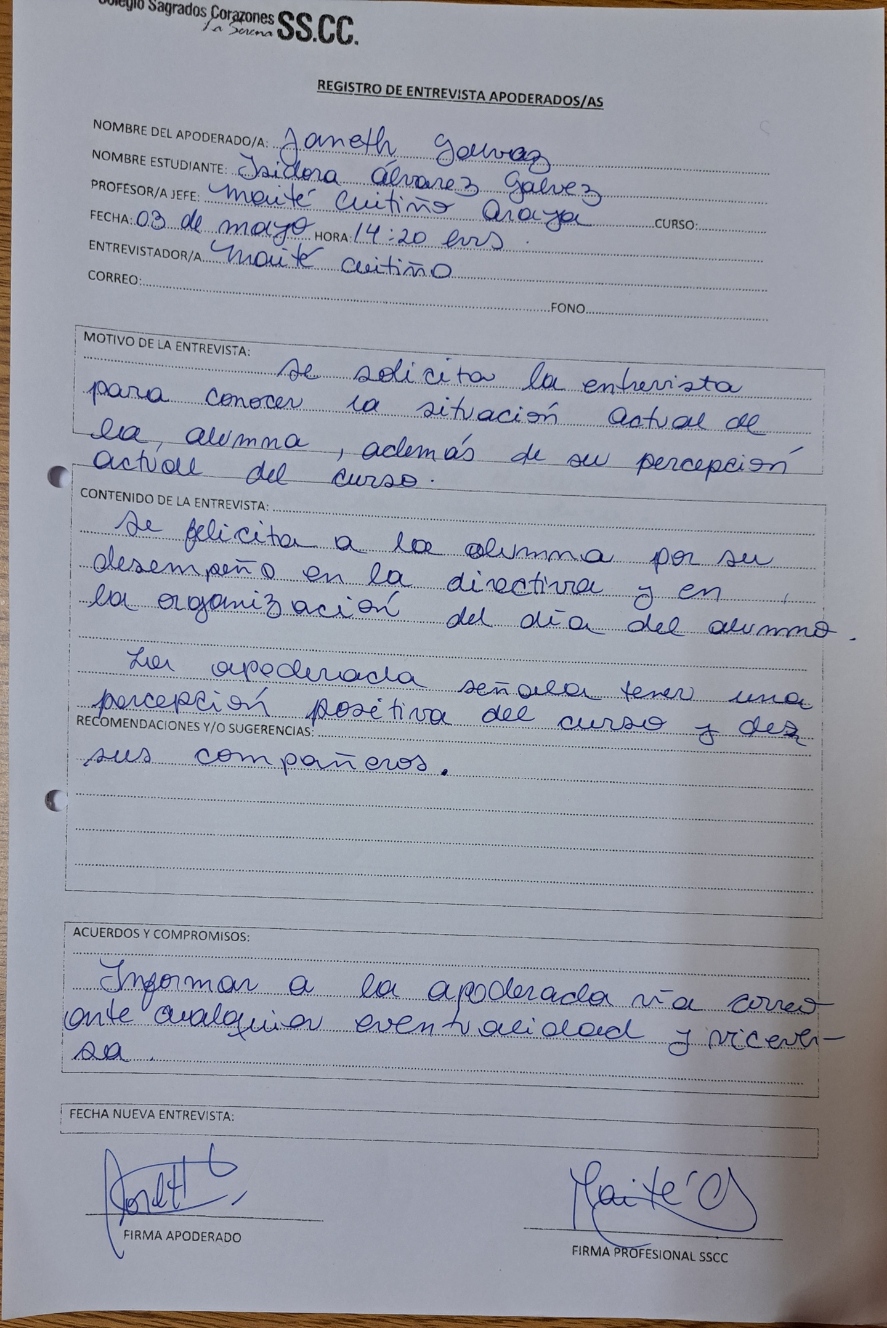 Colegio Sagrados Corazones
La Serena SS.CC.
REGISTRO DE ENTREVISTA APODERADOS/AS
NOMBRE DEL APODERADO/A: Janeth Galvez
NOMBRE ESTUDIANTE: Isidora Álvarez Galvez
PROFESOR/A JEFE: Maité Cuitiño Araya CURSO:
FECHA: 03 de mayo HORA: 14:20 hrs.
ENTREVISTADOR/A Maité Cuitiño
CORREO: FONO
MOTIVO DE LA ENTREVISTA:
Se solicita la entrevista
para conocer la situación actual de
la alumna, además de su percepción
actual del curso.
CONTENIDO DE LA ENTREVISTA:
Se felicita a la alumna por su
desempeño en la directiva y en
la organización del día del alumno.
La apoderada señala tener una
percepción positiva del curso y de
RECOMENDACIONES Y/O SUGERENCIAS:
sus compañeros.
ACUERDOS Y COMPROMISOS:
Informar a la apoderada vía correo
ante cualquier eventualidad y vicever-
sa.
FECHA NUEVA ENTREVISTA:
Maité C
FIRMA APODERADO
FIRMA PROFESIONAL SSCC